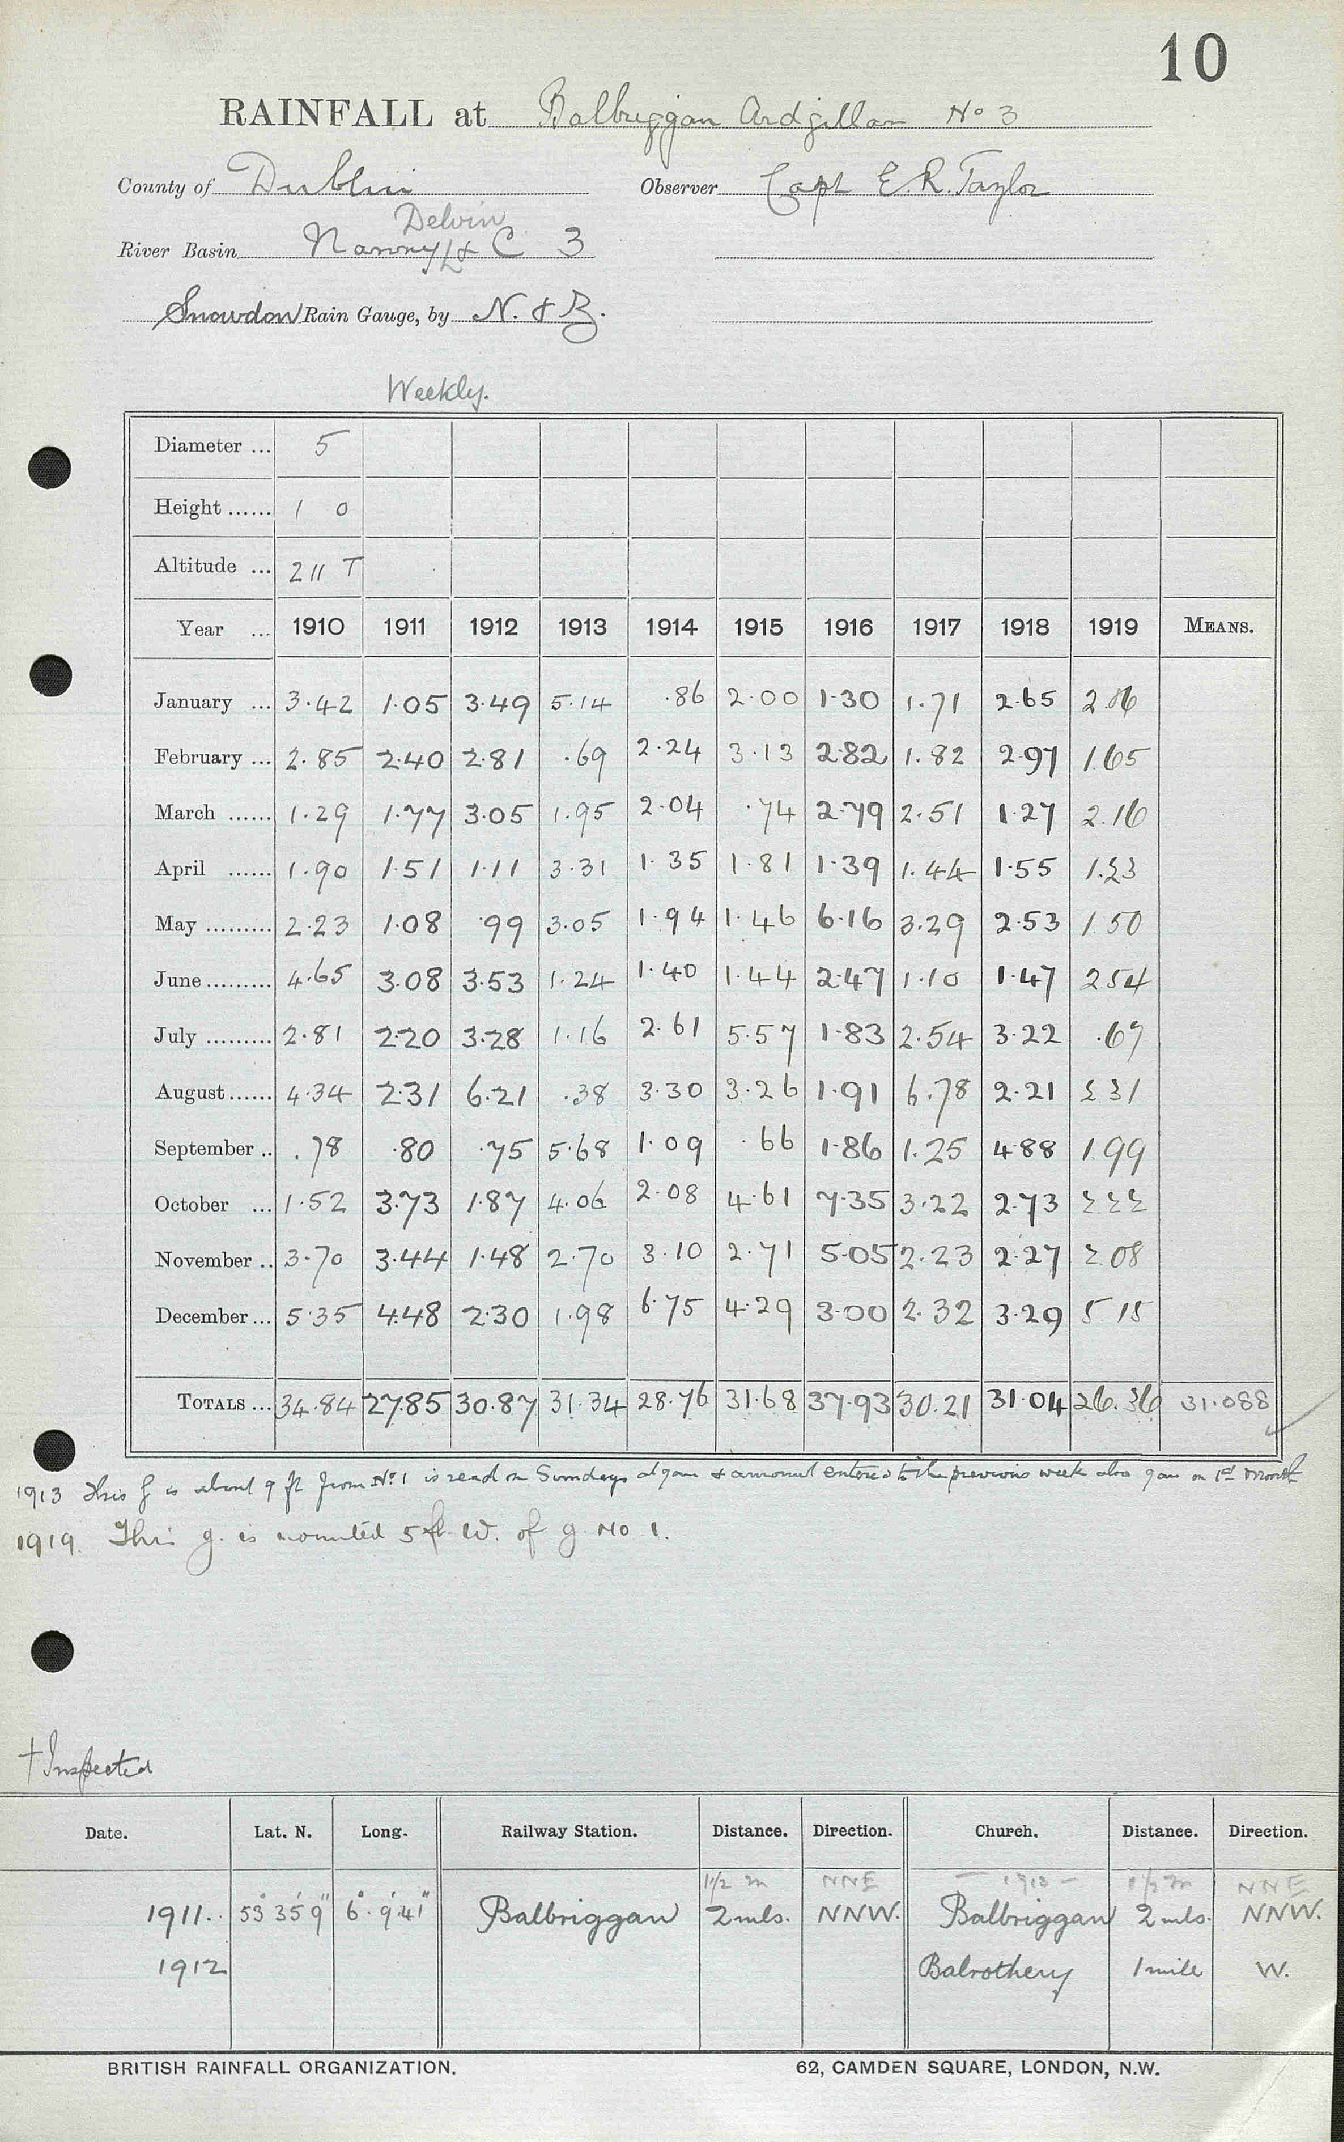 10
RAINFALL at Balbriggan Ardgillan No 3
County of Dublin Observer Capt E R. Taylor
Delvin
River Basin Nanny & C 3
Snowdon Rain Gauge, by N. & Z.
Weekly.
Diameter ... 5
Height ...... 1 0
Altitude ... 211 T
Year ... 1910 1911 1912 1913 1914 1915 1916 1917 1918 1919 MEANS.
January ... 3.42 1.05 3.49 5.14 .86 2.00 1.30 1.71 2.65 2.86
February ... 2.85 2.40 2.81 .69 2.24 3.13 2.82 1.82 2.97 1.65
March ...... 1.29 1.77 3.05 1.95 2.04 .74 2.79 2.51 1.27 2.16
April ...... 1.90 1.51 1.11 3.31 1.35 1.81 1.39 1.44 1.55 1.23
May ......... 2.23 1.08 .99 3.05 1.94 1.46 6.16 3.29 2.53 1.50
June ......... 4.65 3.08 3.53 1.24 1.40 1.44 2.47 1.10 1.47 2.54
July ......... 2.81 2.20 3.28 1.16 2.61 5.57 1.83 2.54 3.22 .67
August ...... 4.34 2.31 6.21 .38 3.30 3.26 1.91 6.78 2.21 2.31
September .. .78 .80 .75 5.68 1.09 .66 1.86 1.25 4.88 1.99
October ... 1.52 3.73 1.87 4.06 2.08 4.61 7.35 3.22 2.73 2.22
November .. 3.70 3.44 1.48 2.70 3.10 2.71 5.05 2.23 2.27 2.08
December ... 5.35 4.48 2.30 1.98 6.75 4.29 3.00 2.32 3.29 5.15
TOTALS ... 34.84 27.85 30.87 31.34 28.76 31.68 37.93 30.21 31.04 26.36 31.088
1913 This g is about 9 ft from No 1 is read on Sundays at 9am & amount entered to the previous week also 9am on 1st month
1919. This g. is mounted 5 ft W. of g No 1.
† Inspected
Date. Lat. N. Long. Railway Station. Distance. Direction. Church. Distance. Direction.
1½ m NNE — 1913 — 1½ m NNE
1911. 53° 35' 9" 6° 9' 41" Balbriggan 2 mls. NNW. Balbriggan 2 mls. NNW.
1912 Balrothery 1 mile W.
BRITISH RAINFALL ORGANIZATION. 62, CAMDEN SQUARE, LONDON, N.W.